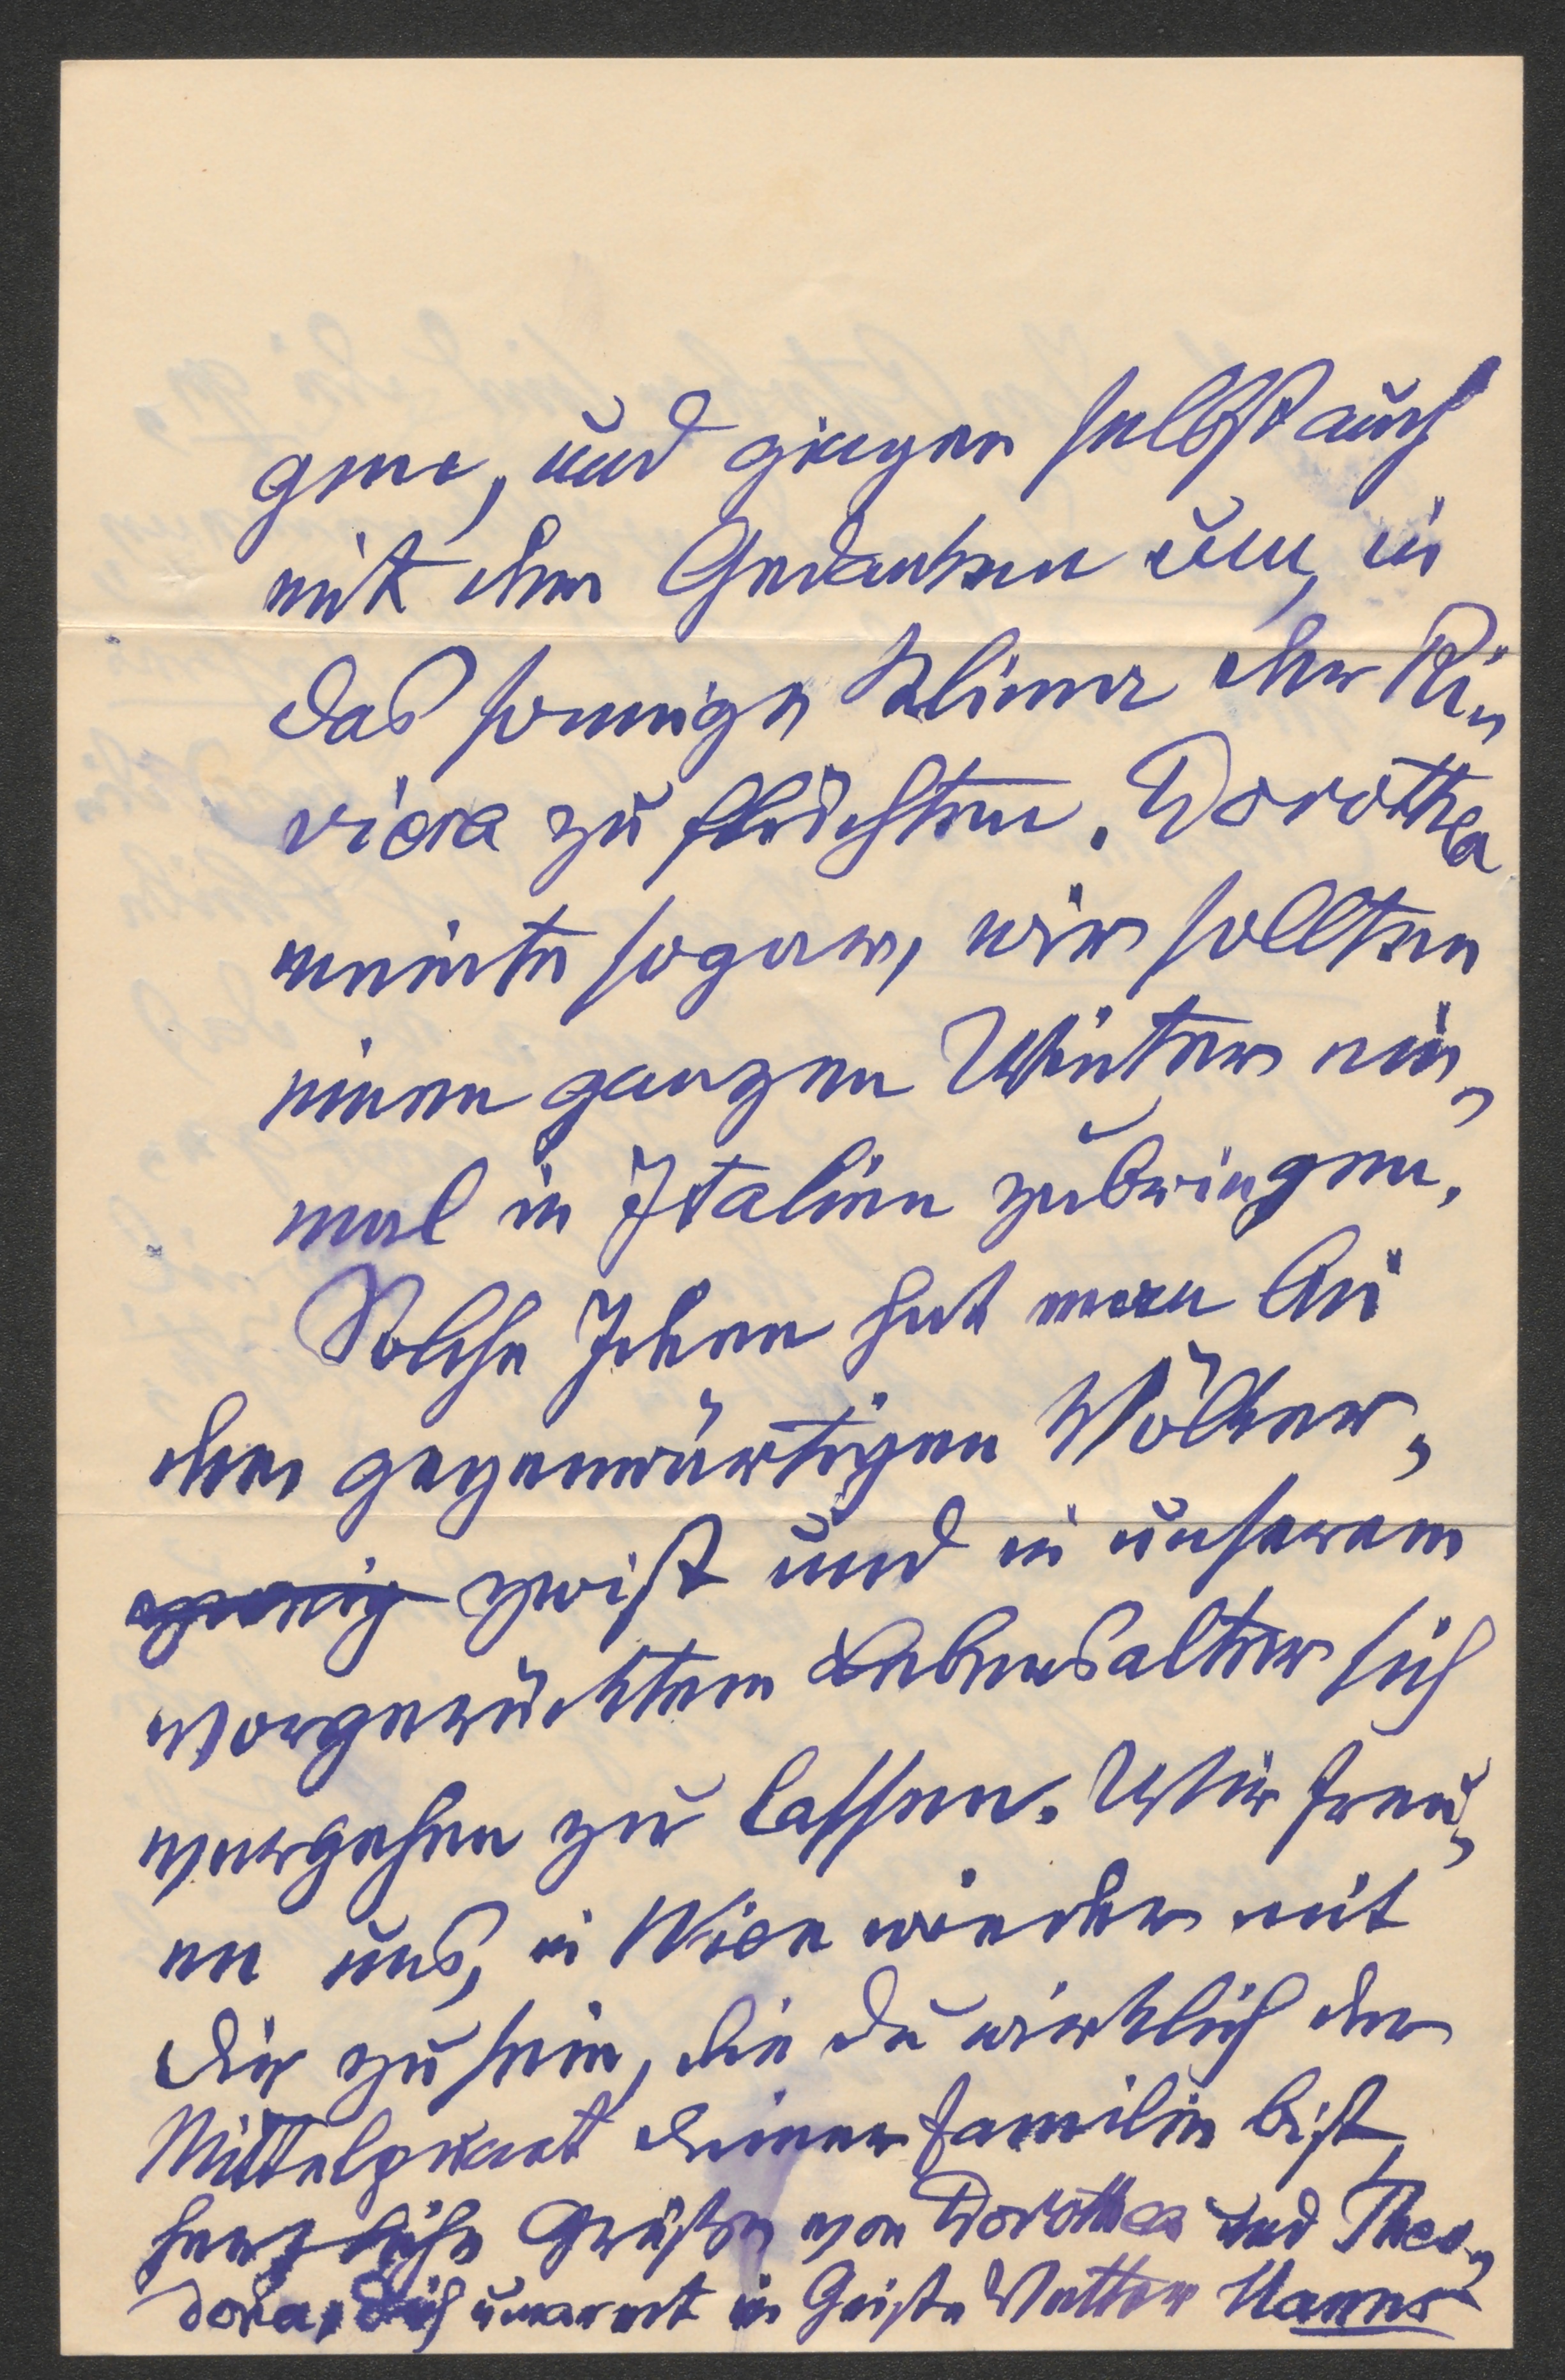 gene, und gingen selbst auch
mit dem Gedanken um, in
das sonnige Klima der Ri„
viera zu flüchten. Dorothea
meinte sogar, wir sollten
einen ganzen Winter ein„
mal in Italien zubringen.
Solche Ideen hat man bei
dem gegenwärtigen Völker„
zwist und in unserem
vorgerückten Lebensalter sich
vergehen zu lassen. Wir freu„
en uns, in Wien wieder mit
dir zu sein, die du wirklich der
Mittelpunkt deiner Familie bist,
herzliche Grüße von Dorothea und Theo„
dora, Dich umarmt im Geiste Vetter Hanns